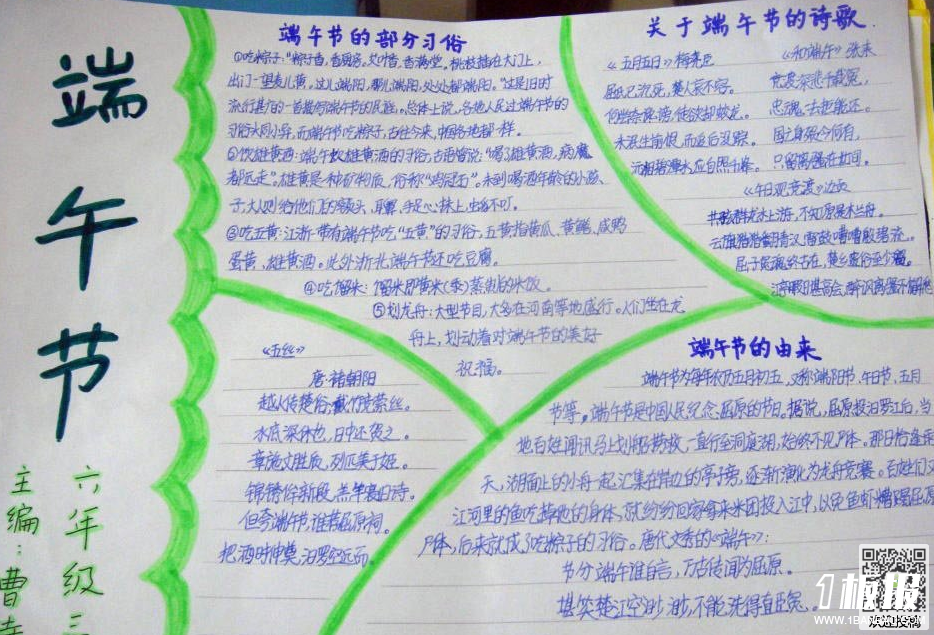 端午节
六年级三
主编：曹
端午节的部分习俗
①吃粽子："粽子香，香厨房，艾叶香，香满堂，桃枝插在大门上，
出门一望麦儿黄，这儿端阳，那儿端阳，处处都端阳。"这是旧时
流行甚广的一首描写端午节的民谣。总体上说，各地人民过端午节的
习俗大同小异，而端午节吃粽子，古往今来，中国各地都一样。
②饮雄黄酒：端午饮雄黄酒的习俗，古语曾说："喝了雄黄酒，病魔
都远走"。雄黄是一种矿物质，俗称"鸡冠石"。未到喝酒年龄的小孩
子，大人则给他们的额头、耳鼻、手足心抹上，虫多不叮。
③吃五黄：江浙一带有端午节吃"五黄"的习俗，五黄指黄瓜、黄鳝、咸鸭
蛋黄、雄黄酒。此外浙北端午节还吃豆腐。
④吃馏米：馏米即黄米(黍)蒸制的米饭。
⑤划龙舟：大型节目，大多在河南等地盛行。人们坐在龙
舟上，划动着对端午节的美好
祝福。
关于端午节的诗歌
《五月五日》梅尧臣
屈氏已沉死，楚人哀不容。
何尝奈谗谤，徒欲却蛟龙。
未泯生前恨，而追没后踪。
沅湘碧潭水，应自照千峰。
《和端午》张耒
竞渡深悲千载冤，
忠魂一去讵能还。
国亡身殒今何有，
只留离骚在世间。
《午日观竞渡》边贡
共骇群龙水上游，不知原是木兰舟。
云旗猎猎翻青汉，雷鼓嘈嘈殷碧流。
屈子冤魂终古在，楚乡遗俗至今留。
《五丝》
唐·褚朝阳
越人传楚俗，截竹竞萦丝。
水底深休也，日中还贺之。
章施文胜质，列匹美于姬。
锦绣侔新段，羔羊寝旧诗。
但夸端午节，谁荐屈原祠。
把酒时伸奠，汨罗空远而。
端午节的由来
端午节为每年农历五月初五，又称端阳节、午日节、五月
节等。端午节是中国人民纪念屈原的节日。据说，屈原投汨罗江后，当
地百姓闻讯马上划船捞救，一直行至洞庭湖，始终不见尸体。那日恰逢雨
天，湖面上的小舟一起汇集在岸边的亭子旁，逐渐演化为龙舟竞赛。百姓们又
江河里的鱼吃掉他的身体，就纷纷回家拿来米团投入江中，以免鱼虾糟蹋屈原
尸体，后来就成了吃粽子的习俗。唐代文秀的《端午》：
节分端午谁自言，万古传闻为屈原。
堪笑楚江空渺渺，不能洗得直臣冤。
1板报
WWW.1BANBAO.COM
欢迎投稿